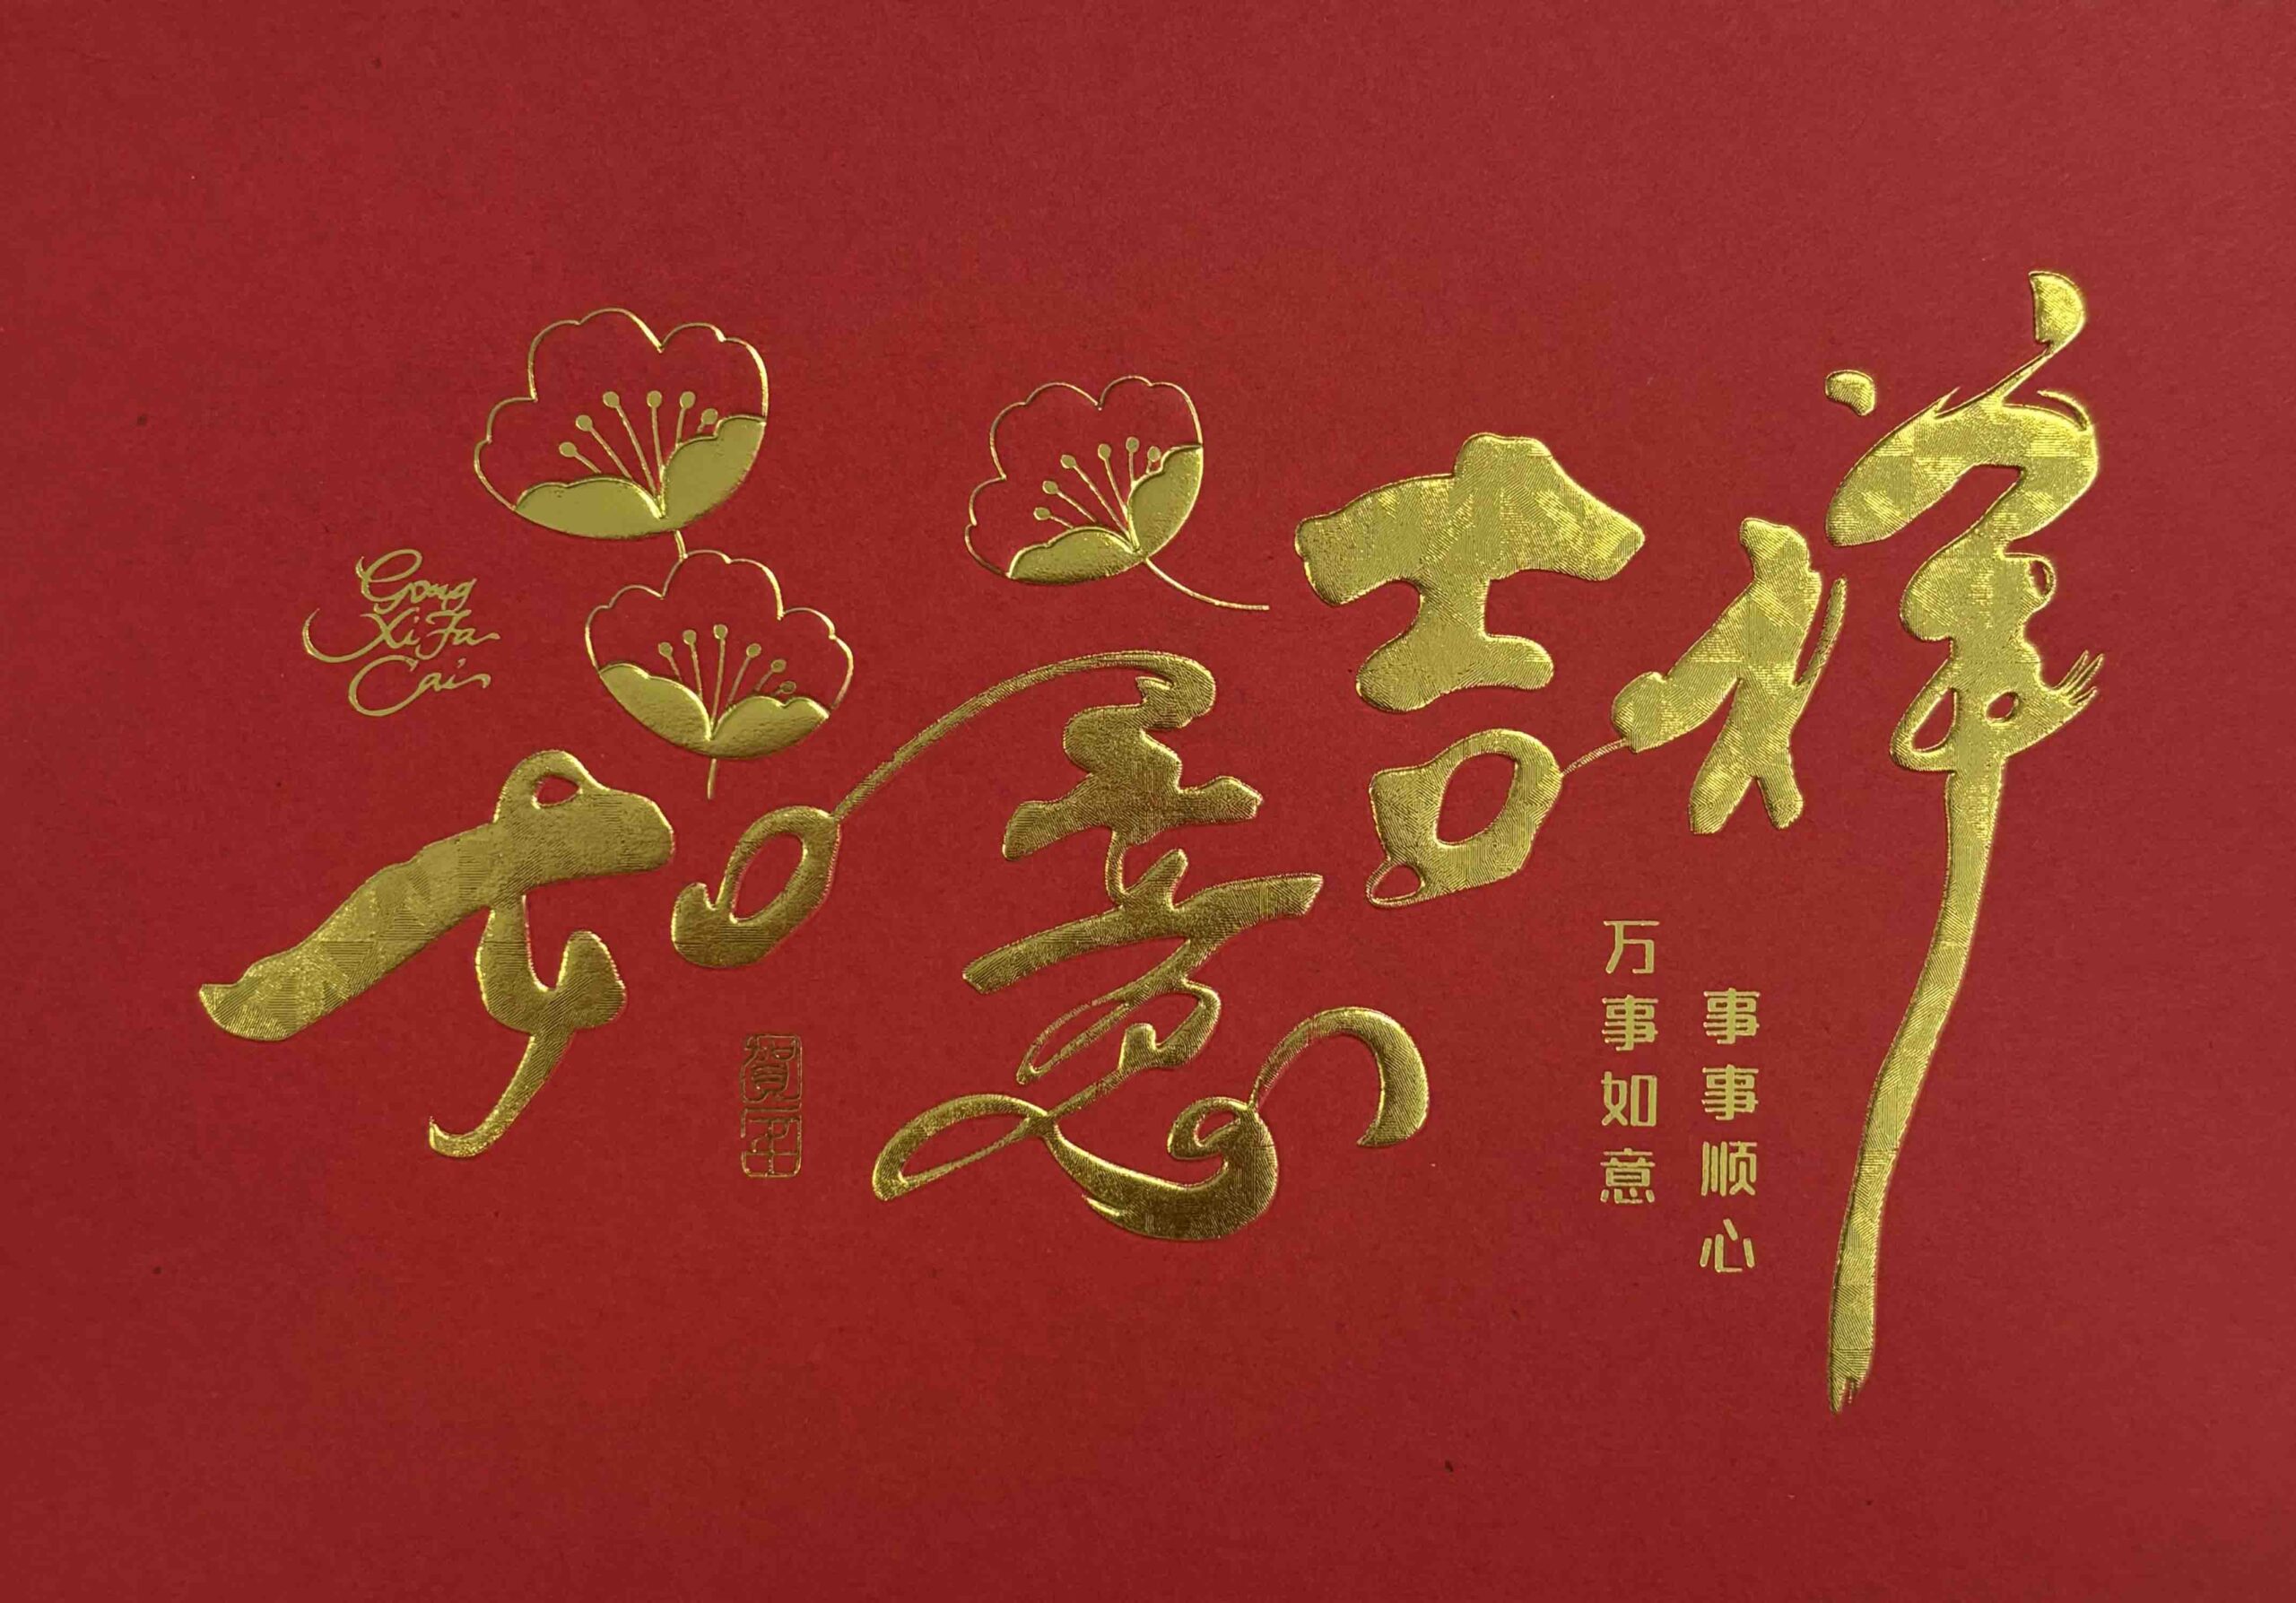 如意吉祥
Gong
Xi Fa
Cai
事事顺心
万事如意